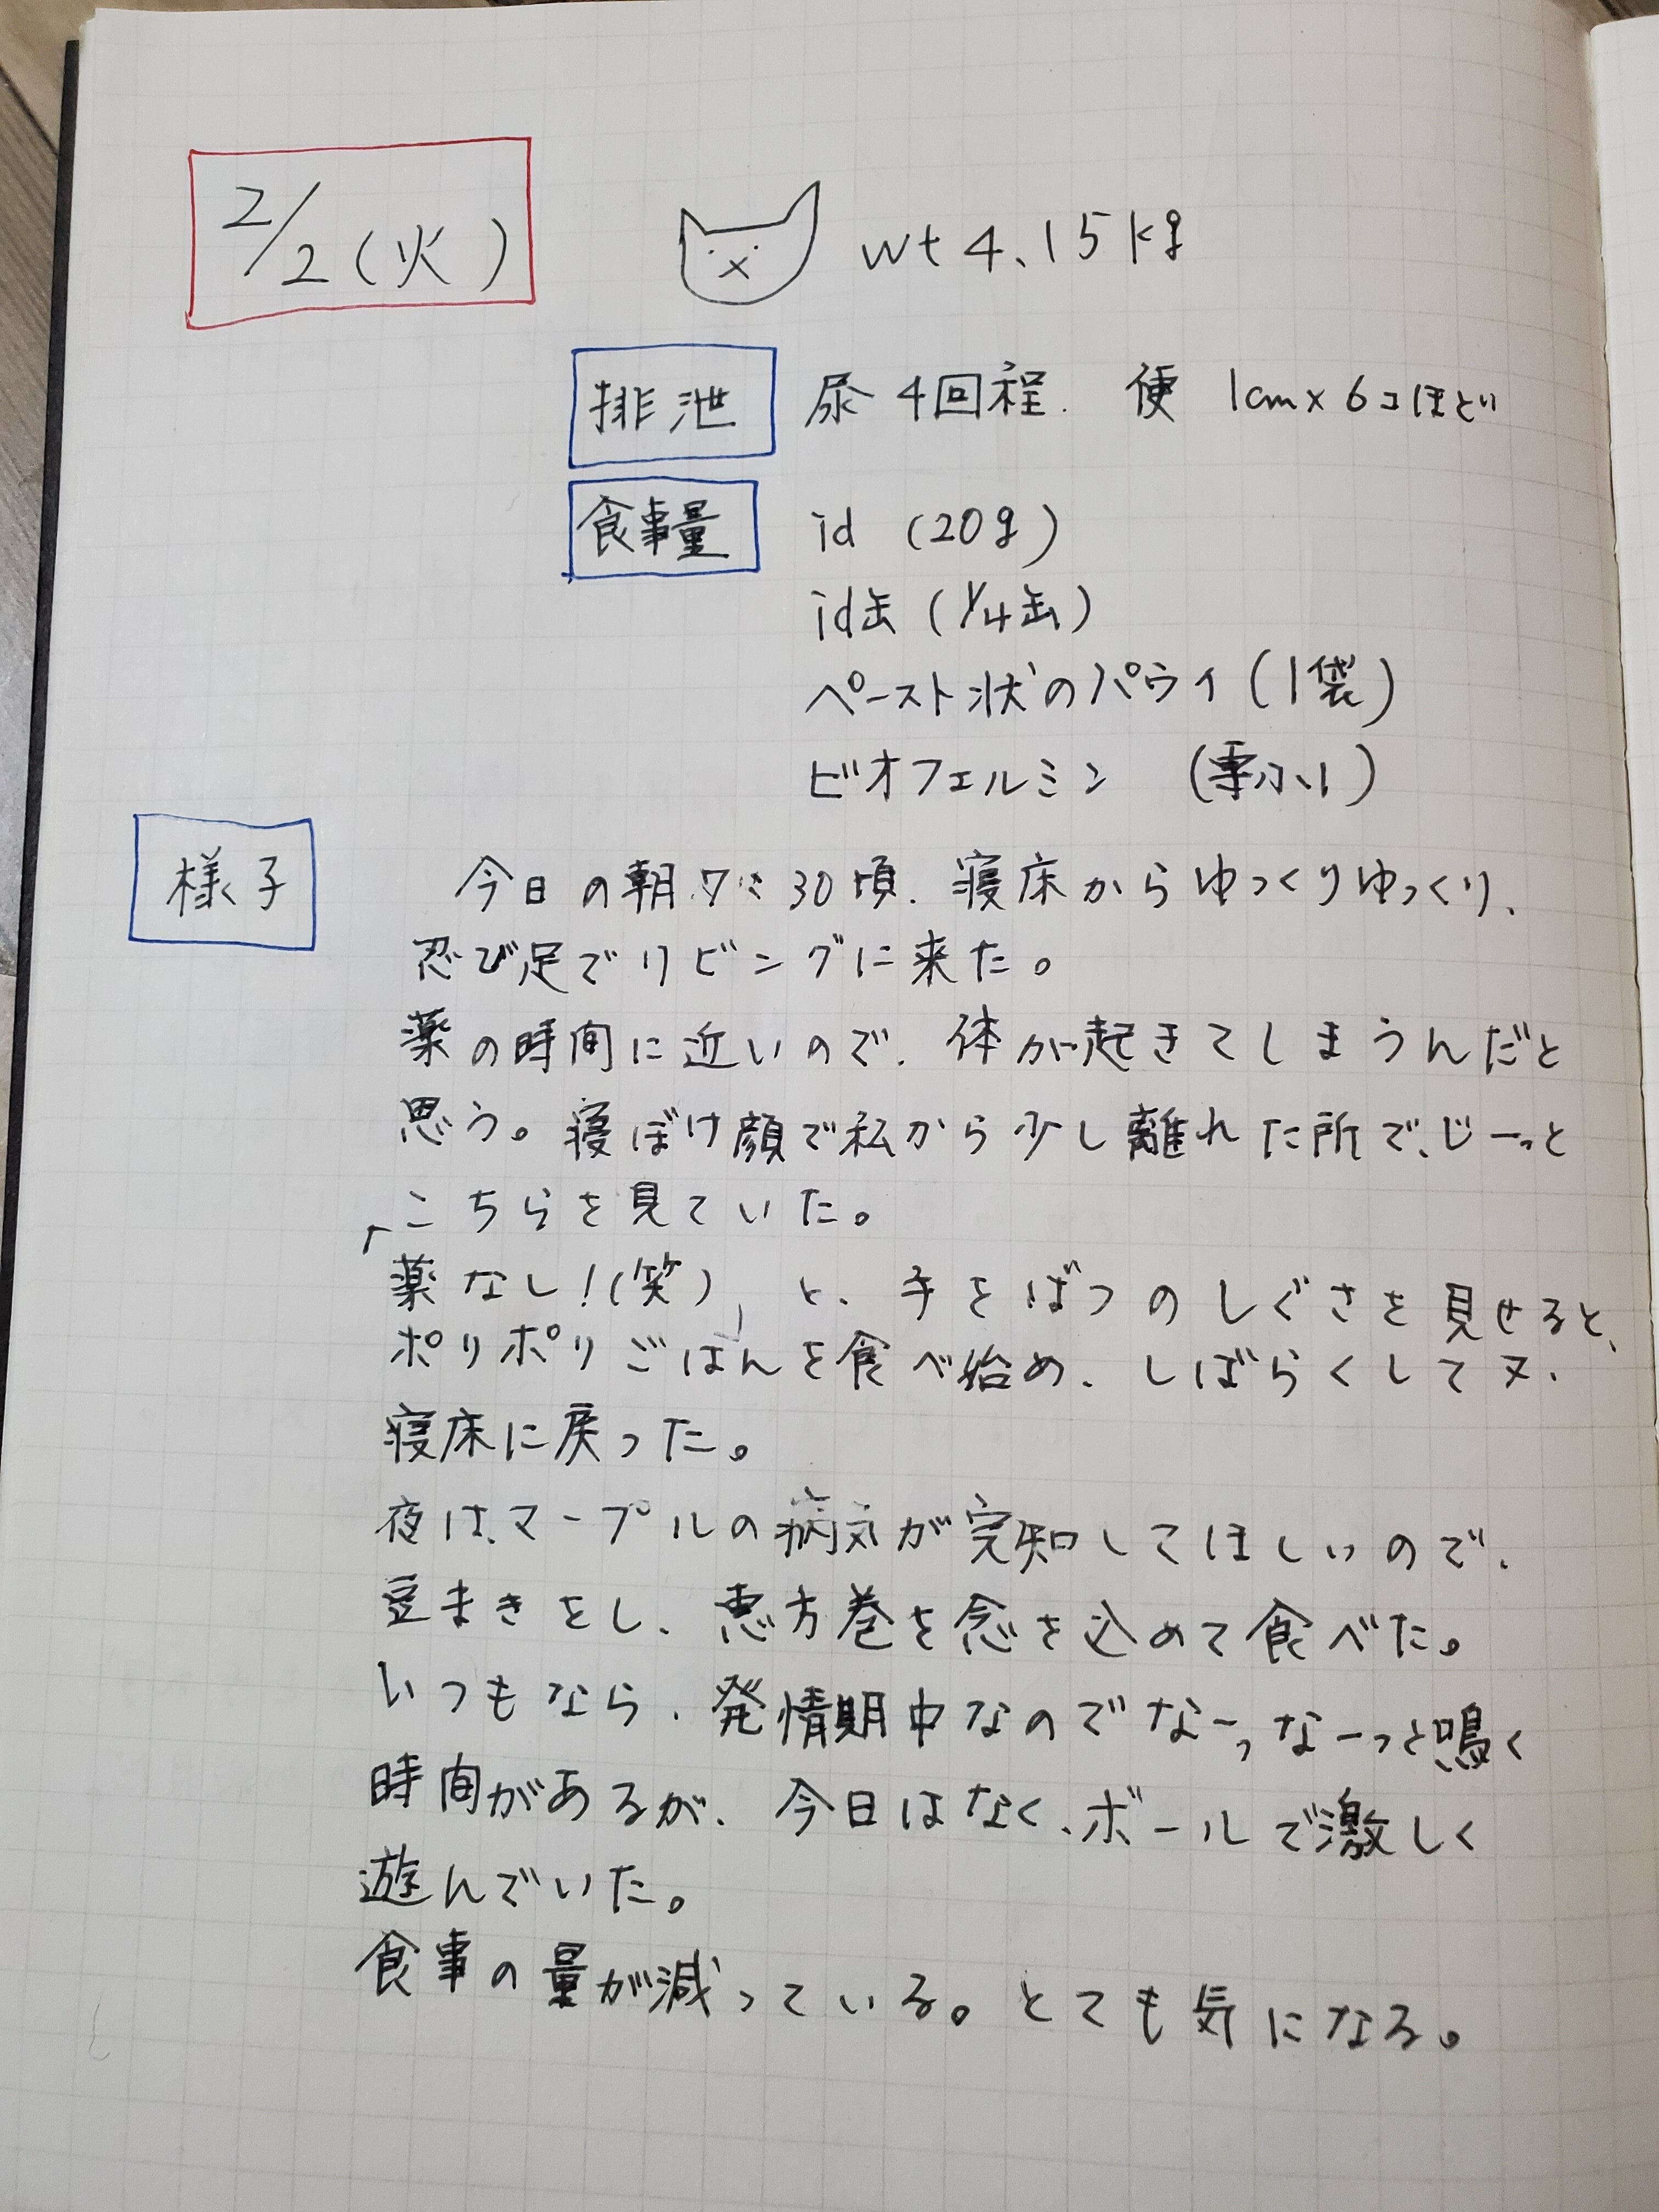 2/2(火)
wt 4.15kg
排泄 尿 4回程. 便 1cm×6コほど
食事量 id (20g)
id缶 (1/4缶)
ペースト状のパウイ(1袋)
ビオフェルミン (耳かい1)
様子 今日の朝7:30頃、寝床からゆっくりゆっくり、
忍び足でリビングに来た。
薬の時間に近いので、体が起きてしまうんだと
思う。寝ぼけ顔で私から少し離れた所で、じーっと
こちらを見ていた。
「薬なし!(笑)」と、手をばつのしぐさを見せると、
ポリポリごはんを食べ始め、しばらくして又、
寝床に戻った。
夜は、マープルの病気が完知してほしいので、
豆まきをし、恵方巻を念を込めて食べた。
いつもなら、発情期中なのでなーっなーっと鳴く
時間があるが、今日はなく、ボールで激しく
遊んでいた。
食事の量が減っている。とても気になる。